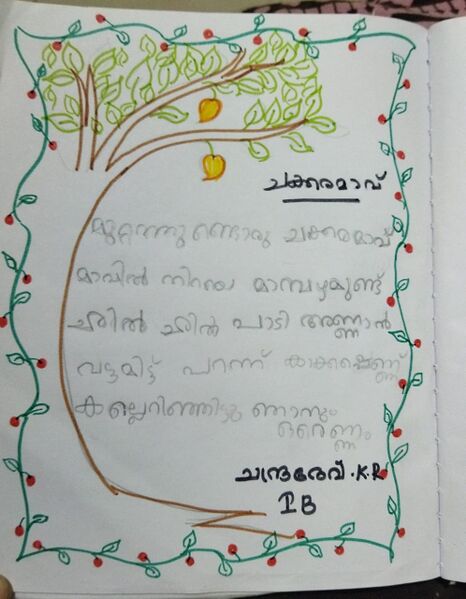 ചക്കരമാവ്
മുറ്റത്തുണ്ടൊരു ചക്കരമാവ്
മാവിൽ നിറയെ മാമ്പഴമുണ്ട്
ഛിൽ ഛിൽ പാടി അണ്ണാൻ
വട്ടമിട്ട് പറന്ന് കാക്കപ്പെണ്ണ്
കല്ലെറിഞ്ഞിട്ടു ഞാനും
ഒരെണ്ണം
ചന്ദ്രദേവ്.K.R
I B